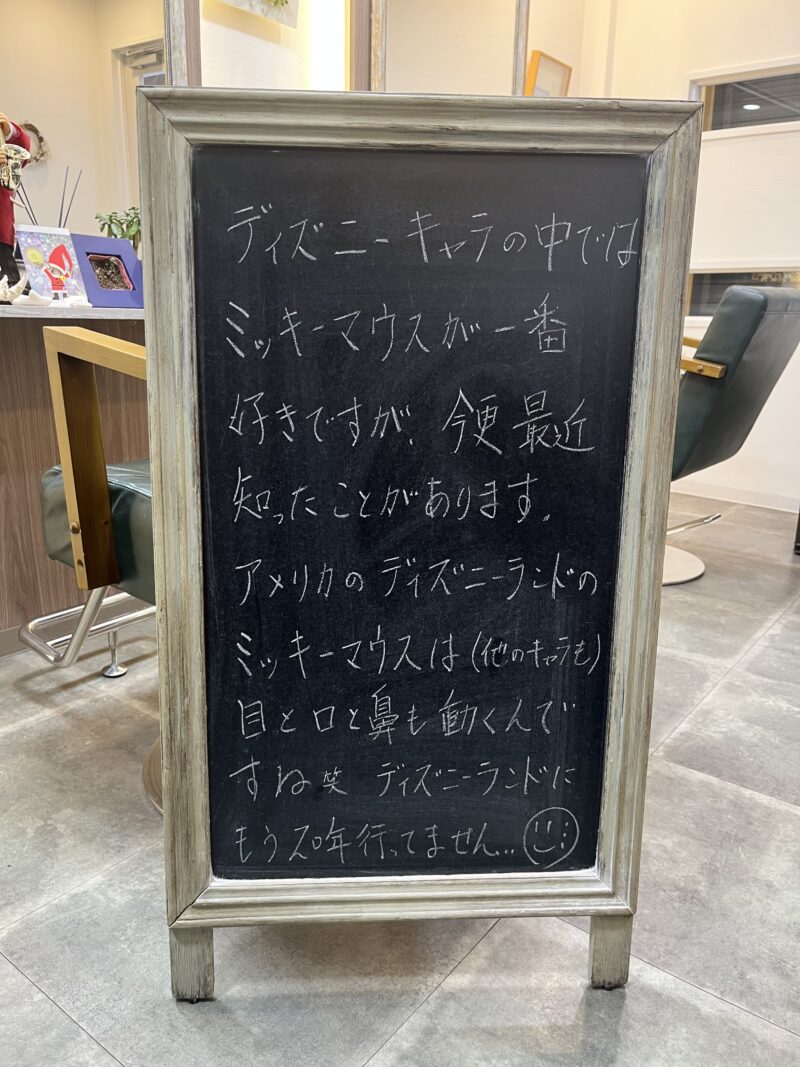 ディズニーキャラの中では
ミッキーマウスが一番
好きですが、今更最近
知ったことがあります。
アメリカのディズニーランドの
ミッキーマウスは(他のキャラも)
目と口と鼻も動くんで
すね笑 ディズニーランドに
もう20年行ってません...